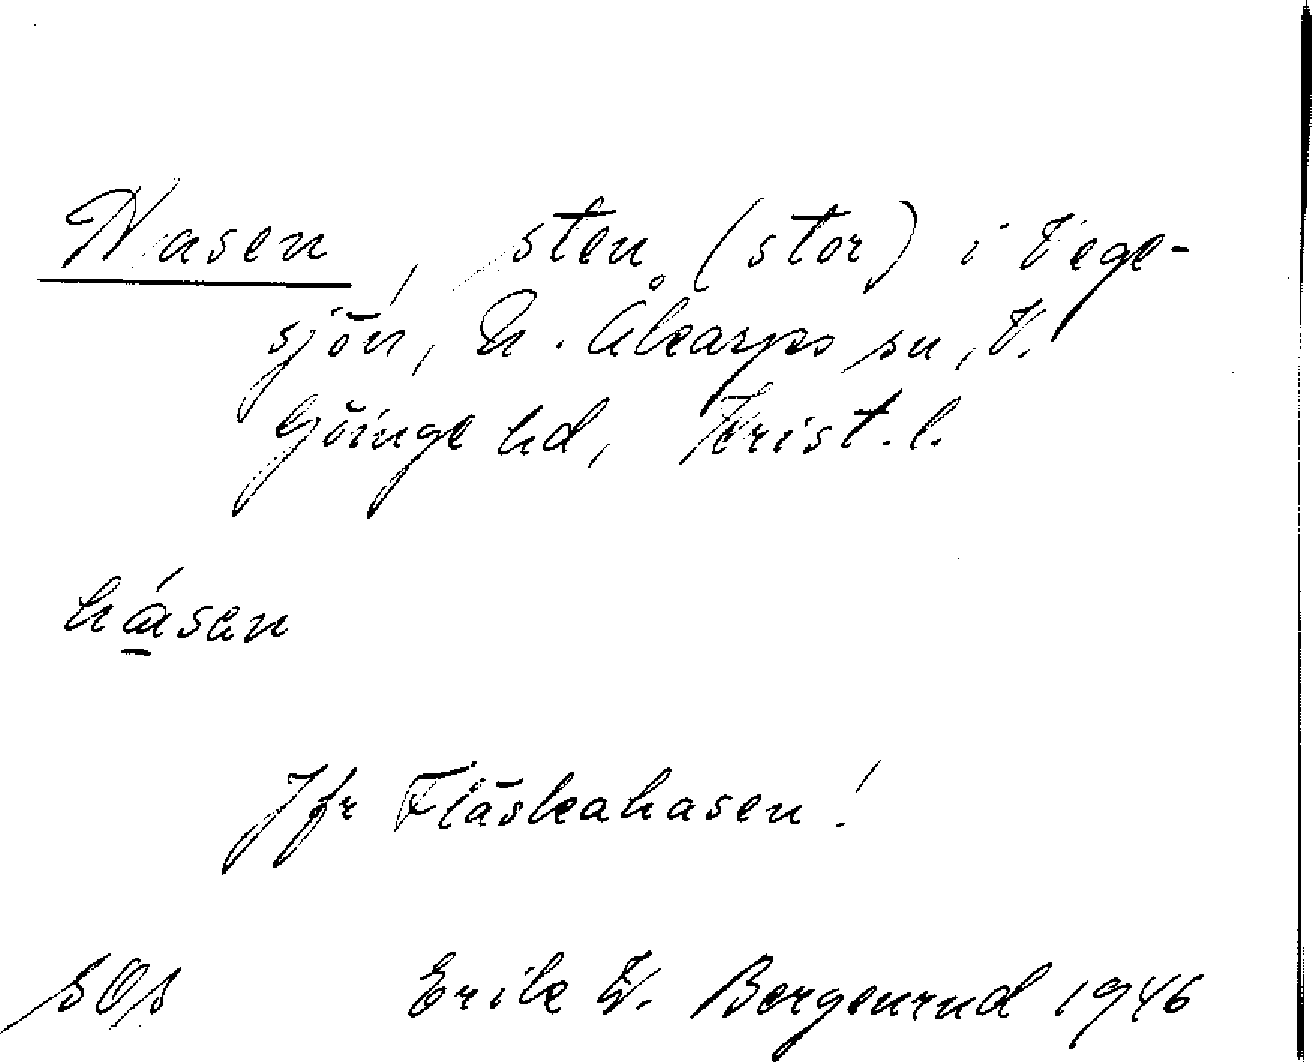 Hasen, sten (stor) i Vege-
sjön, N. Åkarps sn, V.
Göinge hd, Krist. l.
hásan
Jfr Fläskahasen!
Erik Bergenrud 1946